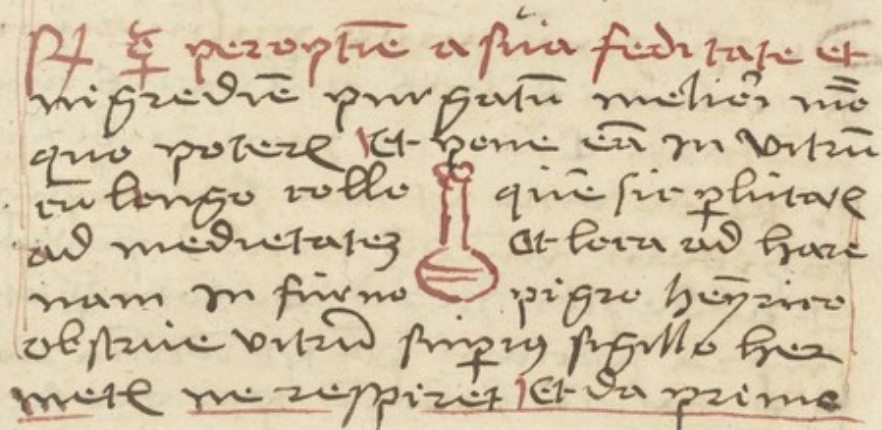 per optīē a sua feditate et
nigrediē purgatū meliori mō
quo poteris Et pone eā in vitrū
cū longo collo quē sit plutat
ad medietatē Et loca ad hare
nam in furno pigro henrico
obstrue vitrū superius sigillo her
metis ne respiret Et da prime